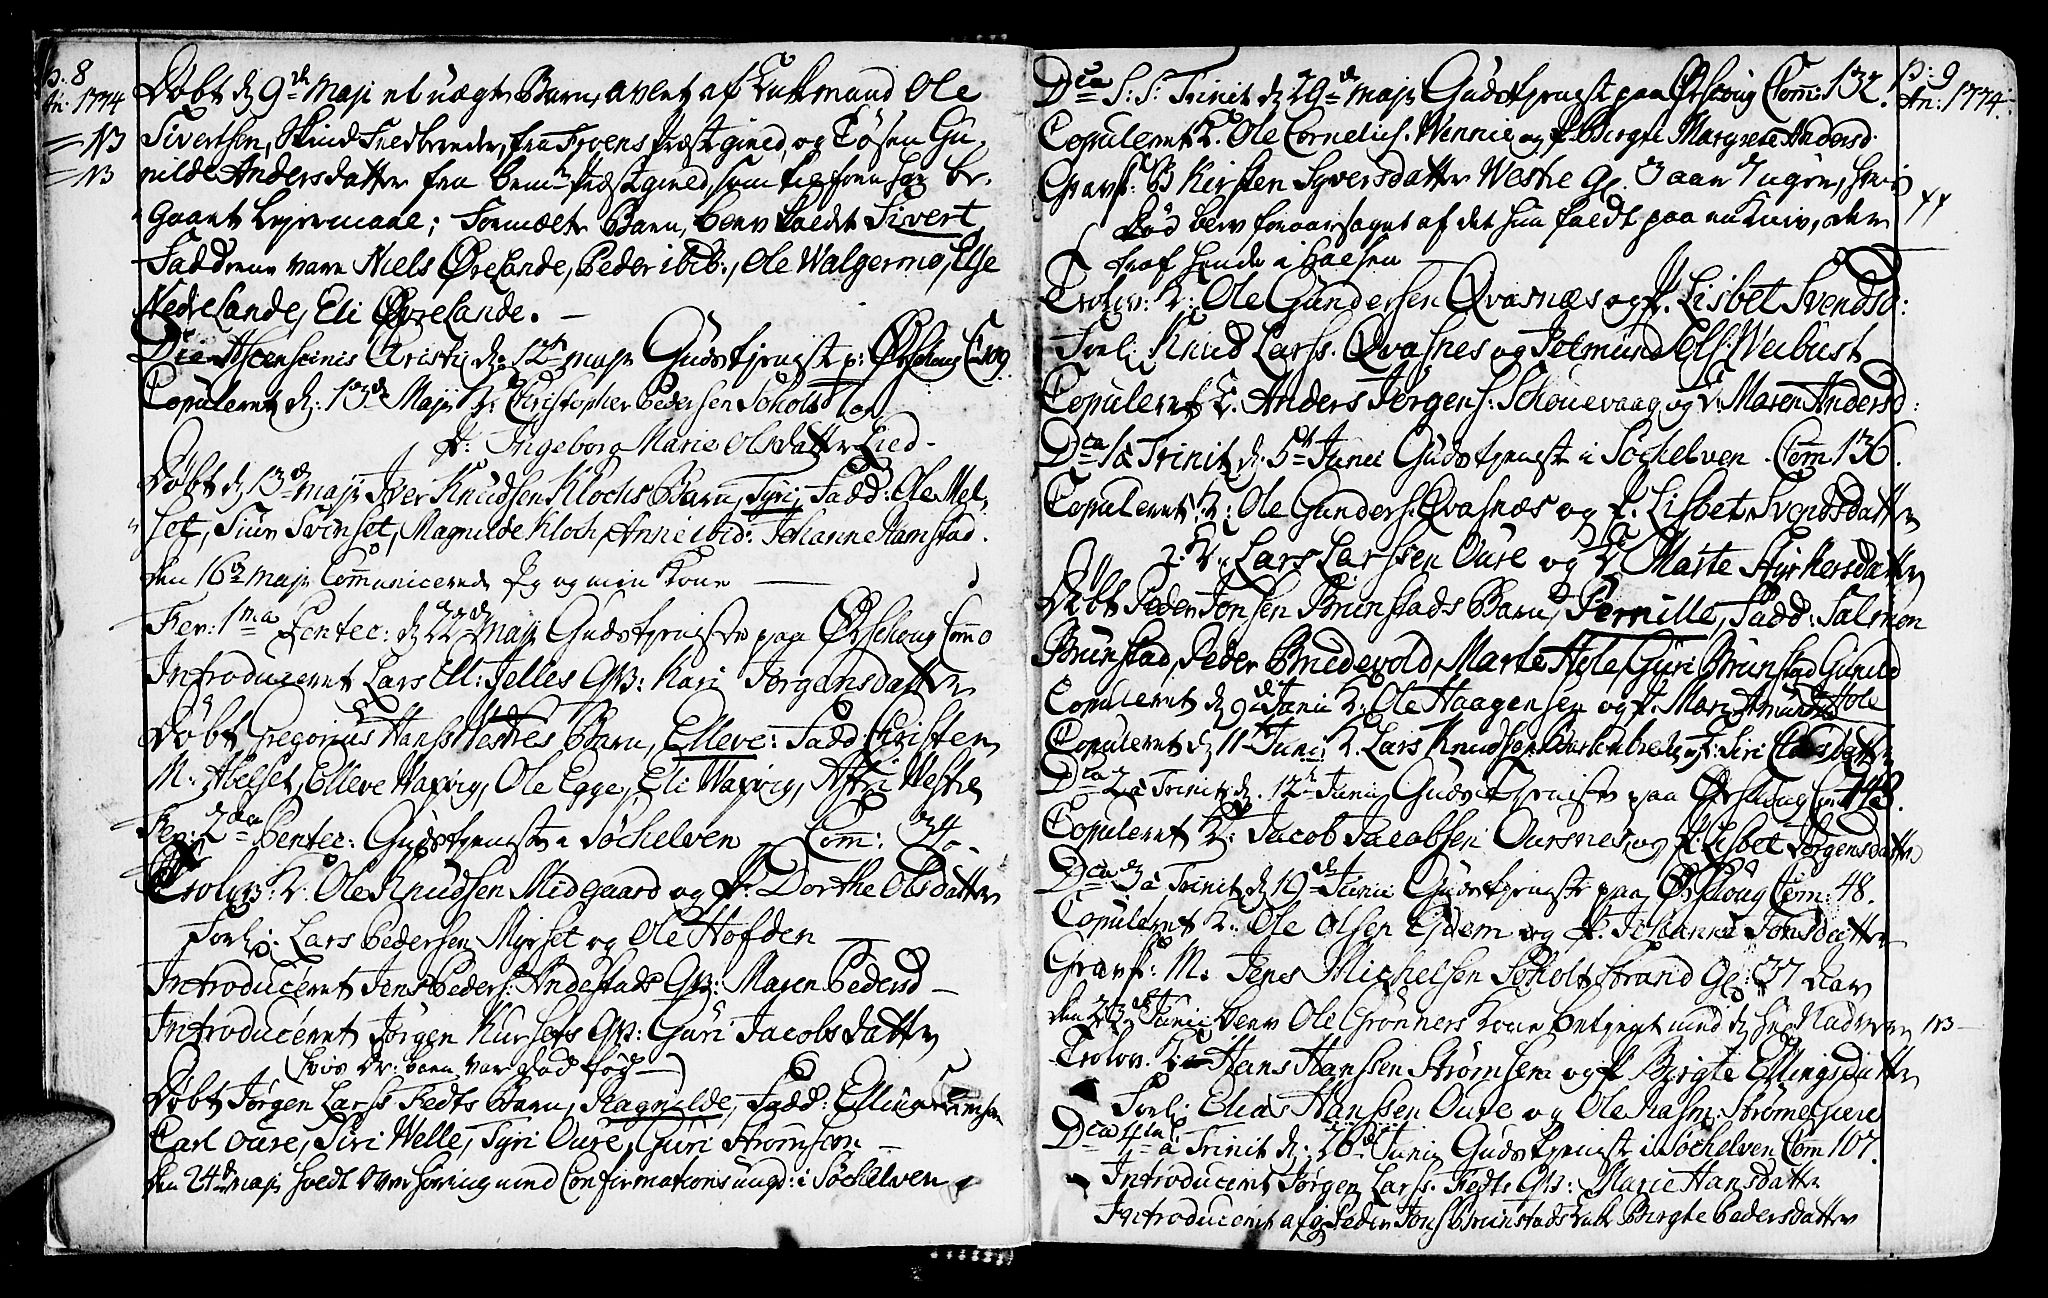 p: 8
An: 1774
Døbt d 9de Maji et uægte Barn, avlet af Ole
Sivertsen, fra og Tøsen Gu-
nilde Andersdatter fra bemte Præstegield, som tilforn har be-
gaaet Leyermaal; Formælte Barn, blev kaldet Sivert,
Faddrene vare Niels Øvrelande, Peder ibid:, Ole Walgermo, Else
Nedrelande, Eli Øvrelande. —
Die Ascensionis Christi d: 12te Maji Gudstieneste p: Ørschoug C: 109
Copuleret d: 13de Maji K: Christopher Pedersen Søholt og
P: Ingeborg Marie Olsdatter Lied -
Døbt d 13de Maji Iver Knudsen Klochs Barn, Syri, Fadd: Ole Mel-
set, Siur Svinset, Magnilde Kloch, Anne ibid: Johanne Hamstad.
den 16de Maji Communicerede Jeg og min Kone —
Fer: 1ma Pentec: d 22de Maji Gudstieneste paa Ørschoug Comm 0
Introduceret Lars Ell: Jelles Qv: Kari Jørgensdatter
Døbt Gregorius Hanss Westres Barn, Elleve: Fadd: Christen
M: Abelset, Elleve Waxvig, Ole Egge, Eli Waxvig, Astri Westre
Fer: 2da Pentec: Gudstieneste i Søchelven — Com: 340 -
Trolov: K: Ole Knudsen Midgaard og P: Dorthe Olsdatter
Forl: Lars Pedersen Myrset og Ole Hofden —
Introduceret Jens Peders: Andestads Qv: Maren Pedersd —
Introduceret Jørgen Kursets Qv: Guri Jacobsdatter
(hvis Dr: barn var død fød —)
Døbt Jørgen Larss Fedts Barn, Ragnilde, Fadd: Elling
Carl Oure, Siri Welle, Syri Oure, Guri Strømsem —
den 24de Maji holdt Overhøring med Confirmations ungd: i Søchelven
p: 9
An: 1774
Dca S: S: Trinit d 29de Maji Gudstieneste paa Ørschoug Com: 132.
Copuleret K: Ole Cornelius. Wennie og P: Birgte Margrete Andersd.
Gravf: B Kirsten Syversdatter Westre gl. 3 aar 7 uger, hvis
Død blev foraarsaget af det hun faldt paa en Kniv, der
traf hende i Halsen —
Trolov: K: Ole Gundersen Qvasnæs og P. Lisbet Svendsd:
Forl: Knud Larss. Qvasnes og Elss: Webust
Copuleret K. Anders Jørgens: Schouevaag og P: Maren Andersd:
Dca 1 a Trinit d. 5te Junii Gudstieneste i Søchelven. Com 136.
Copuleret K: Ole Gunders: Qvasnæs og P. Lisbet Svendsdatter
2 K: Lars Larssen Oure og P Marte Styrkersdatter
Døbt Peder Jonsen Brunstads Barn, Pernille, Fadd: Salmon
Brunstad, Peder Bredevold, Marte Hole, Guri Brunstad Gunild
Copuleret d 9de Junii K: Ole Haagensen og P. Mari Hole
Copuleret d 11te Junii K: Lars Knudsen og P: Siri
Dca 2 a Trinit d. 12te Junii Gudstieneste paa Ørschoug Com 148.
Copuleret K: Jacob Jacobsen Oursnes og P. Lisbet Jørgensdatter
Dca 3 a Trinit d 19de Junii Gudstieneste paa Ørschoug Com: 48.
Copuleret K: Ole Olsen Eidem og P: Johanne Jonsdatter
Gravf: M. Jens Michelsen Søholtstrand gl: 37 Aar
den 23de Junii blev Ole Grønners Kone betient med d
Trolov: K: Hans Hanssen Strømsem og P Birgte Ellingsdatter
Forl: Elias Hanssen Oure og Ole Rasm: Strømesiere
Dca 4 a Trinit d: 26de Junii Gudstieneste i Søchelven Com 107.
Introduceret Jørgen Larss. Fedts Qv: Marie Hansdatter
Introduceret afg Peder Jons Brunstads Birgte Pedersdatter